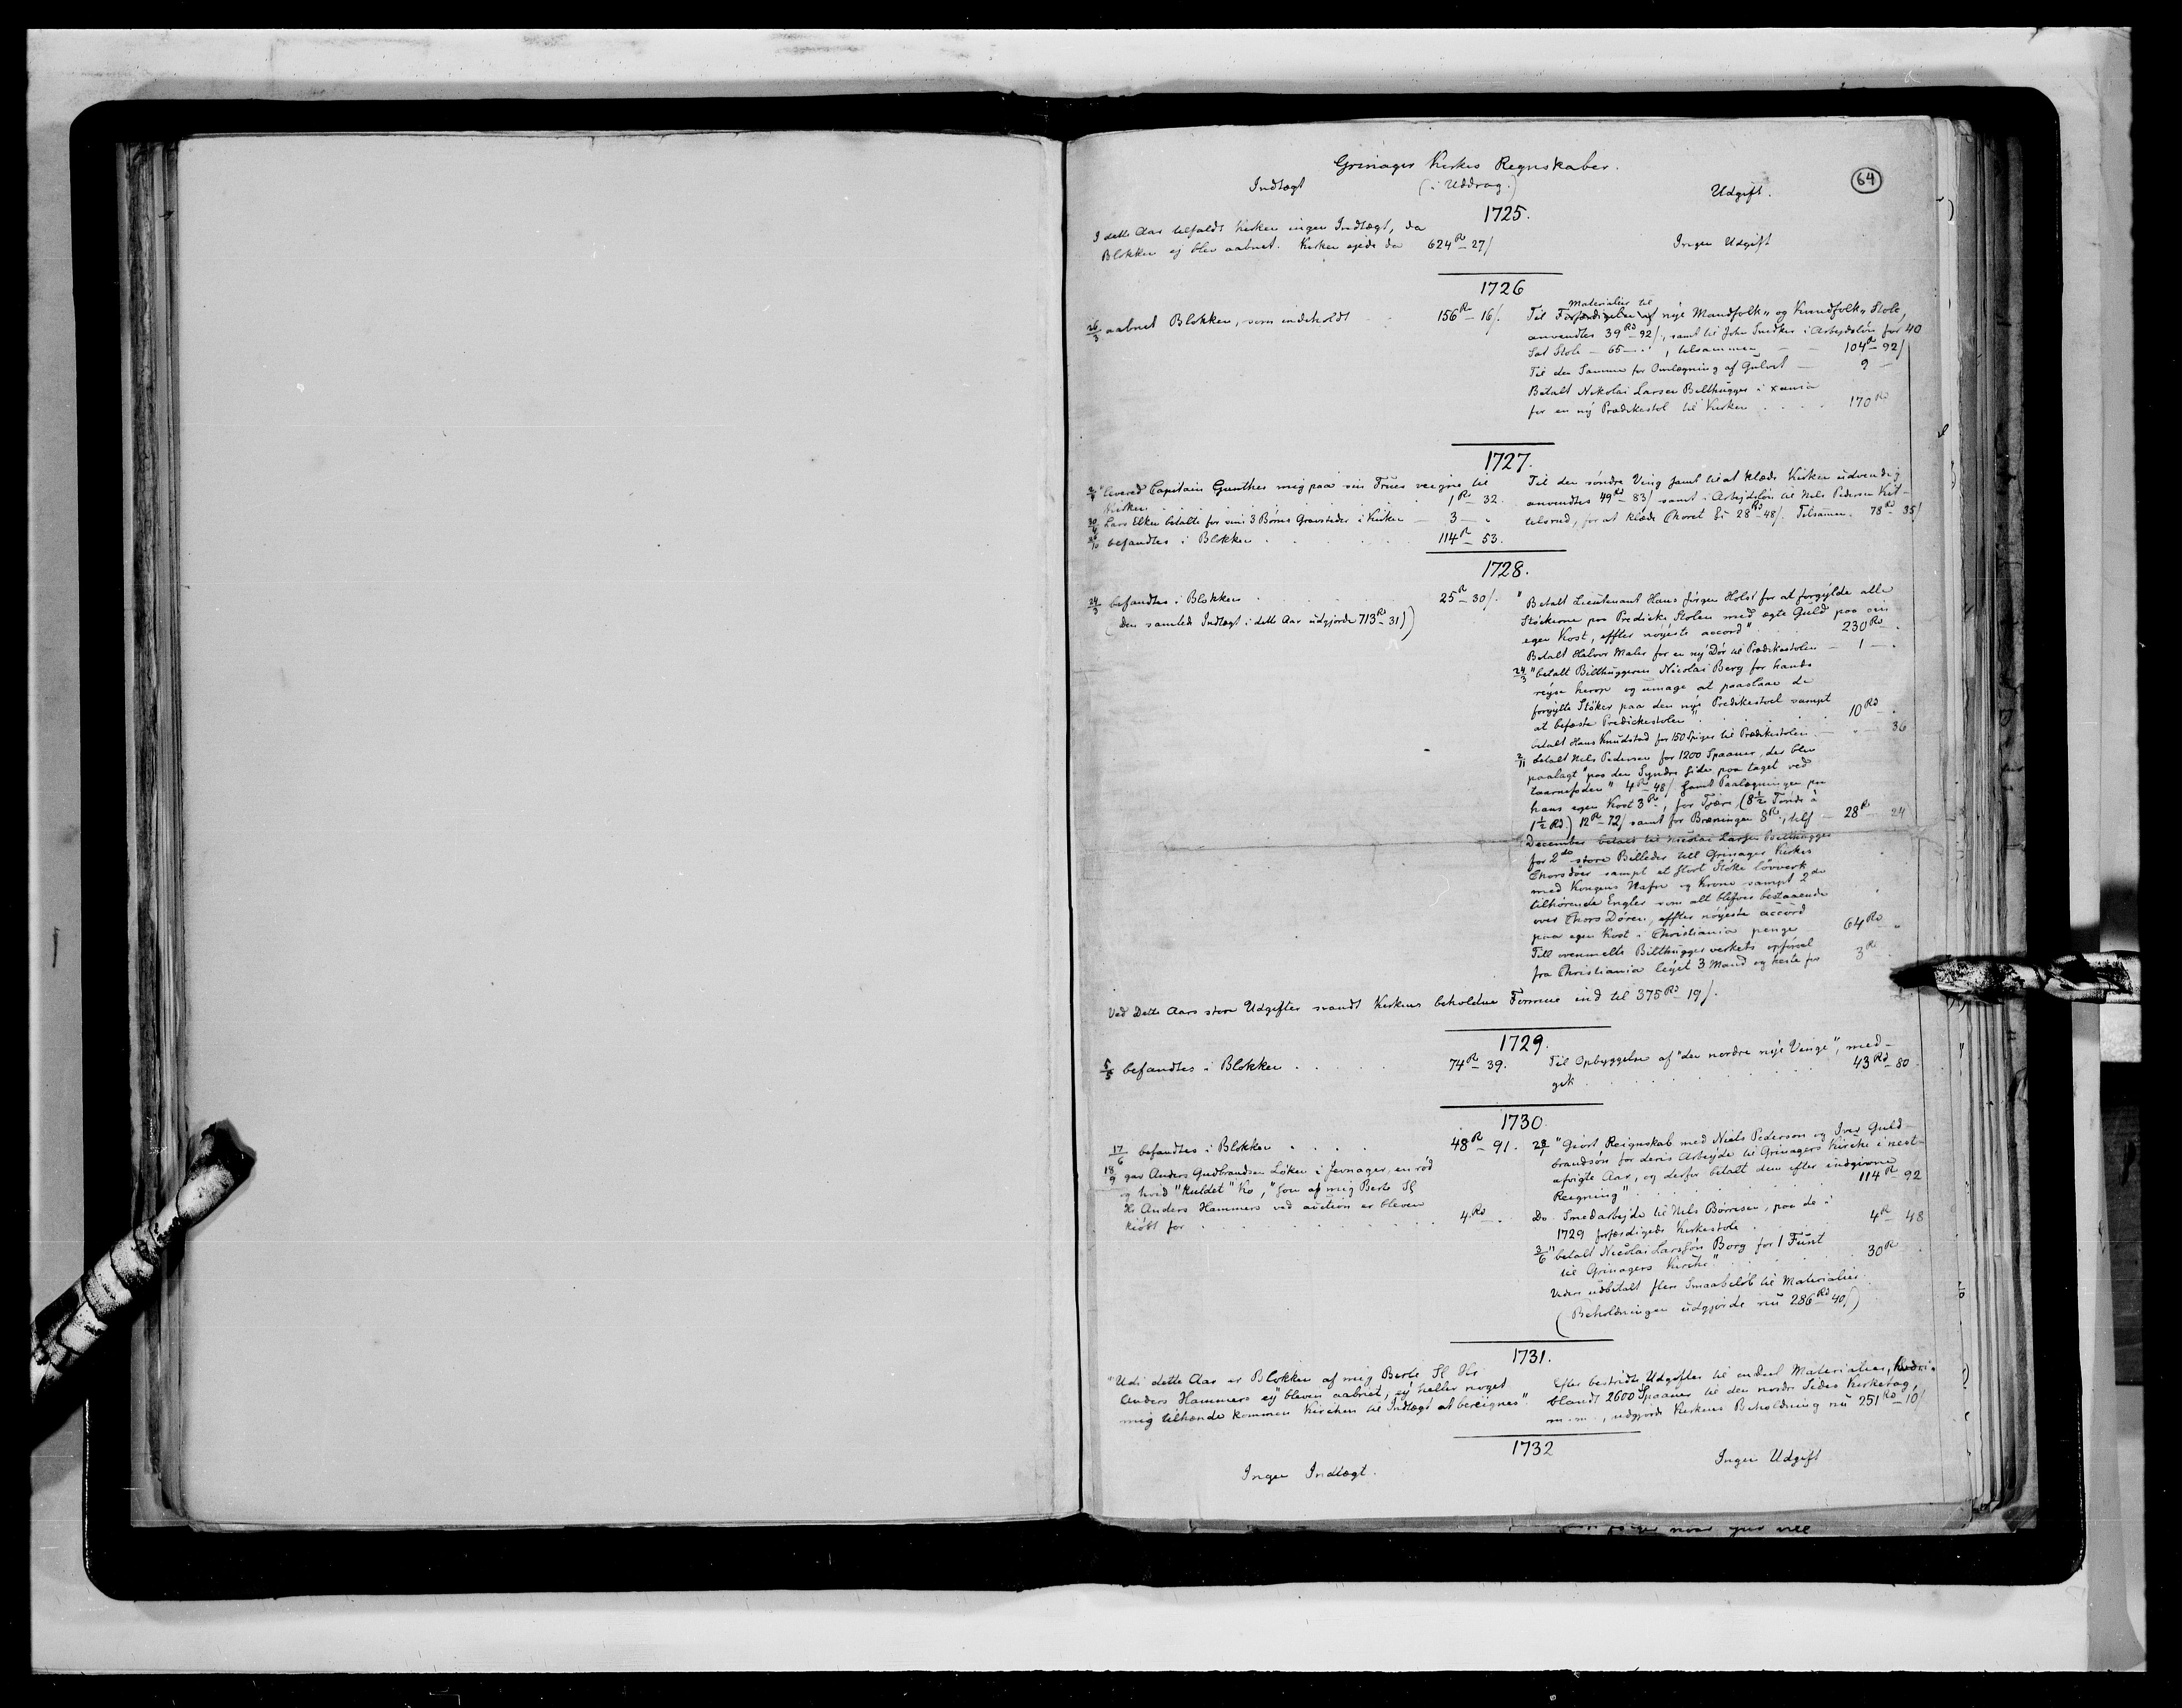 Grinager Kirkes Regnskaber.
(i Uddrag.)
64
Indtægt
Udgift.
1725.
I dette Aar tilfaldt Kirken ingen Indtægt, da
Blokken ej blev aabnet. Kirken ejede da 624 R - 27/
Ingen Udgift
1726
26/3 aabnet Blokken, som indeholdt 156 Rd - 16/.
Materialier til
Til Forfærdigelse af nye Mandfolk- og Kvindfolk- Stole,
anvendtes 39 Rd - 92/, samt til John Snedker i Arbejdsløn for 40
Sæt Stole - 65 - " , tilsammen 104 R - 92/
Til den Samme for Omlægning af Gulvet - 9 -
Betalt Nikolai Larsen Bilthugger i Xania
for en ny Prædikestol til Kirken . . . . 170 Rd
1727.
levered Capitain Gunther mig paa sin Frues veigne til
Kirken . . . . 1 Rd - 32.
30/6 Lars Elken betalte for sine 3 Børns Gravsteder i Kirken - 3 - "
26/10 befandtes i Blokken . . . . 114 R - 53.
Til den søndre Ving samt til at klæde Kirken udvendig
anvendtes 49 Rd - 83/ samt i Arbejdsløn til Nils Pedersen Kit-
telsrud, for at klæde Choret 28 Rd - 48/. Tilsamen. 78 Rd - 35/
1728.
24/3 befandtes i Blokken . . . . 25 R - 30/.
(Den samlede Indtægt i dette Aar udgjorde 713 Rd - 31/)
" Betalt Lieutenant Hans Jørgen Holst for at forgylde alle
Støckerne paa Predicke Stolen med egte Guld paa sin
egen Kost, effter nøyeste accord" . . 230 Rd - .
Betalt Halvor Maler for en ny Dør til Prædikestolen - 1 - .
24/3 "betalt Bilthuggeren Nicolai Berg for hands
reyse herop og umage at paaslaae de
forgylte Støker paa den nye Predikestoel sampt
at befæste Predickestolen" . . . . 10 Rd - .
betalt Hans Knudstad for 150 Spiger til Prædikestolen - " - 36
2/11 betalt Nils Pedersen for 1200 Spaaner, der blev
paalagt "paa den Syndre Side paa taget ved
taarnefoden" 4 R - 48/ samt Paalægningen paa
hans egen Kost 3 Rd, for Tjære (8½ Tønde à
1½ Rd.) 12 R - 72/ samt for Bræningen 8 R., tils. - 28 R - 24
December betalt til Nicolai Larsen Bilthugger
for 2de store Billeder till Grinager Kirkes
Chorsdøer sampt et stort Støke løvverk
med Kongens Nafn og Krone sampt 2de
tilhørende Engler som alt blifver bestaaende
over Chors Døren, effter nøyeste accord
paa egen Kost i Christiania penge 64 Rd "
Till ovenmelte Bilthugger verkets opførsel
fra Christiania leyet 3 Mand og heste for 3 R
Ved Dette Aars store Udgifter svandt Kirkens beholdne Formue ind til 375 Rd - 19/.
1729.
5/5 befandtes i Blokken . . . . . 74 R - 39.
Til Opbyggelse af "den nordre nye Vinge", med-
gik . . . . . . 43 Rd - 80.
1730.
17/6 befandtes i Blokken . . . . 48 R - 91.
18/9 gav Anders Gudbrandsen Løken i Jevnager, en rød
og hvid "kuldet" Ko, "som af mig Berte Sl
Hr Anders Hammers ved auction er bleven
kiøbt for . . . . . . 4 Rd - .
"Giort Reignskab med Niels Pederson og Iver Guld-
brandsøn for deris Arbejde til Grinagers Kirche i nest-
afvigte Aar, og derfor betalt dem efter indgivne
Reigning" . . . . 114 R - 92
Do. Smedarbejde til Nils Børresen, paa de i
1729 forfærdigede Kirkestole . . . . 4 R - 48
3/6 "betalt Nicolai Larssøn Borg for 1 Funt
til Grinagers Kirche" . . . . 30 R
Videre udbetalt flere Smaabeløb til Materialier.
(Beholdningen udgjorde nu 286 Rd 40/)
1731.
"Udi dette Aar er Blokken af mig Berte Sl Hr
Anders Hammers ey bleven aabnet, ey heller noget
mig tilhænde kommen Kirchen til Indtægt at beregnes".
Efter bestridte Udgifter til endeel Materialier, hvori-
blandt 2600 Spaaner til den nordre Sides Kirketag,
m.m., udgjorde Kirkens Beholdning nu 251 Rd - 10/
1732
Ingen Indtægt.
Ingen Udgift